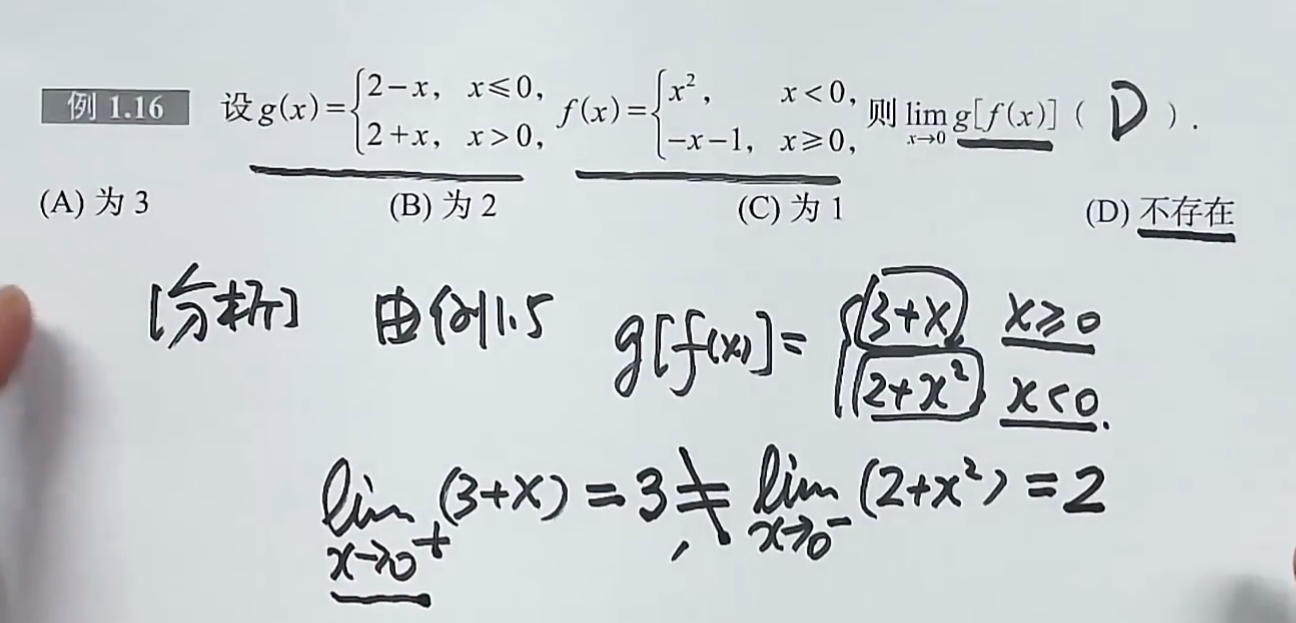 例 1.16 设 g(x)={2-x, x≤0, 2+x, x>0, f(x)={x², x<0, -x-1, x≥0, 则 lim x→0 g[f(x)] ( D ).
(A) 为 3 (B) 为 2 (C) 为 1 (D) 不存在
[分析] 由例1.5 g[f(x)]={3+x, x≥0 2+x² x<0.
lim x→0⁺ (3+x)=3≠lim x→0⁻ (2+x²)=2